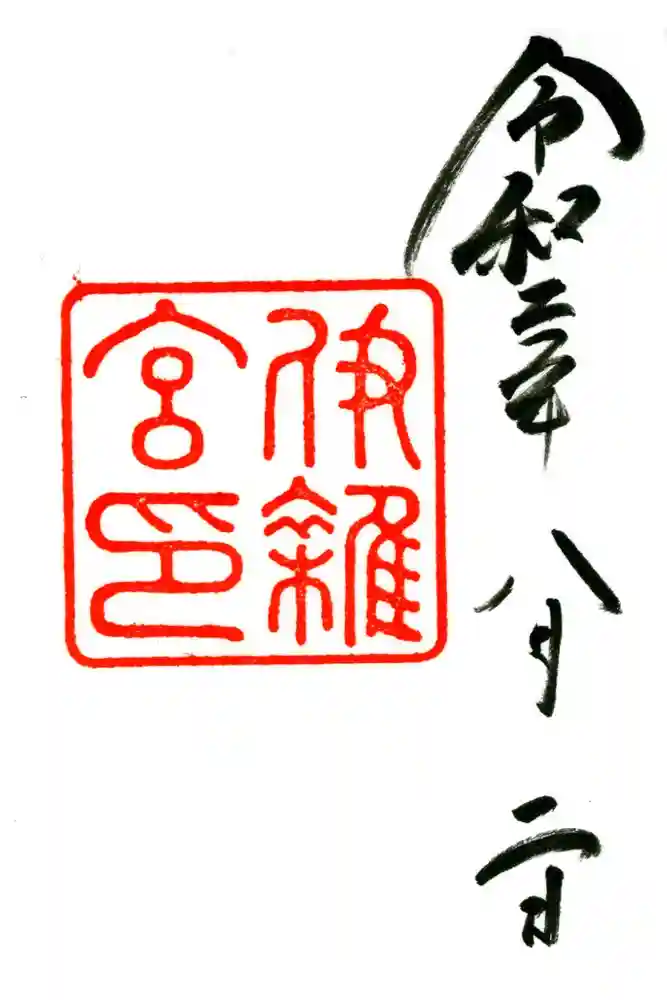 令和二年八月二日
伊雜
宮印